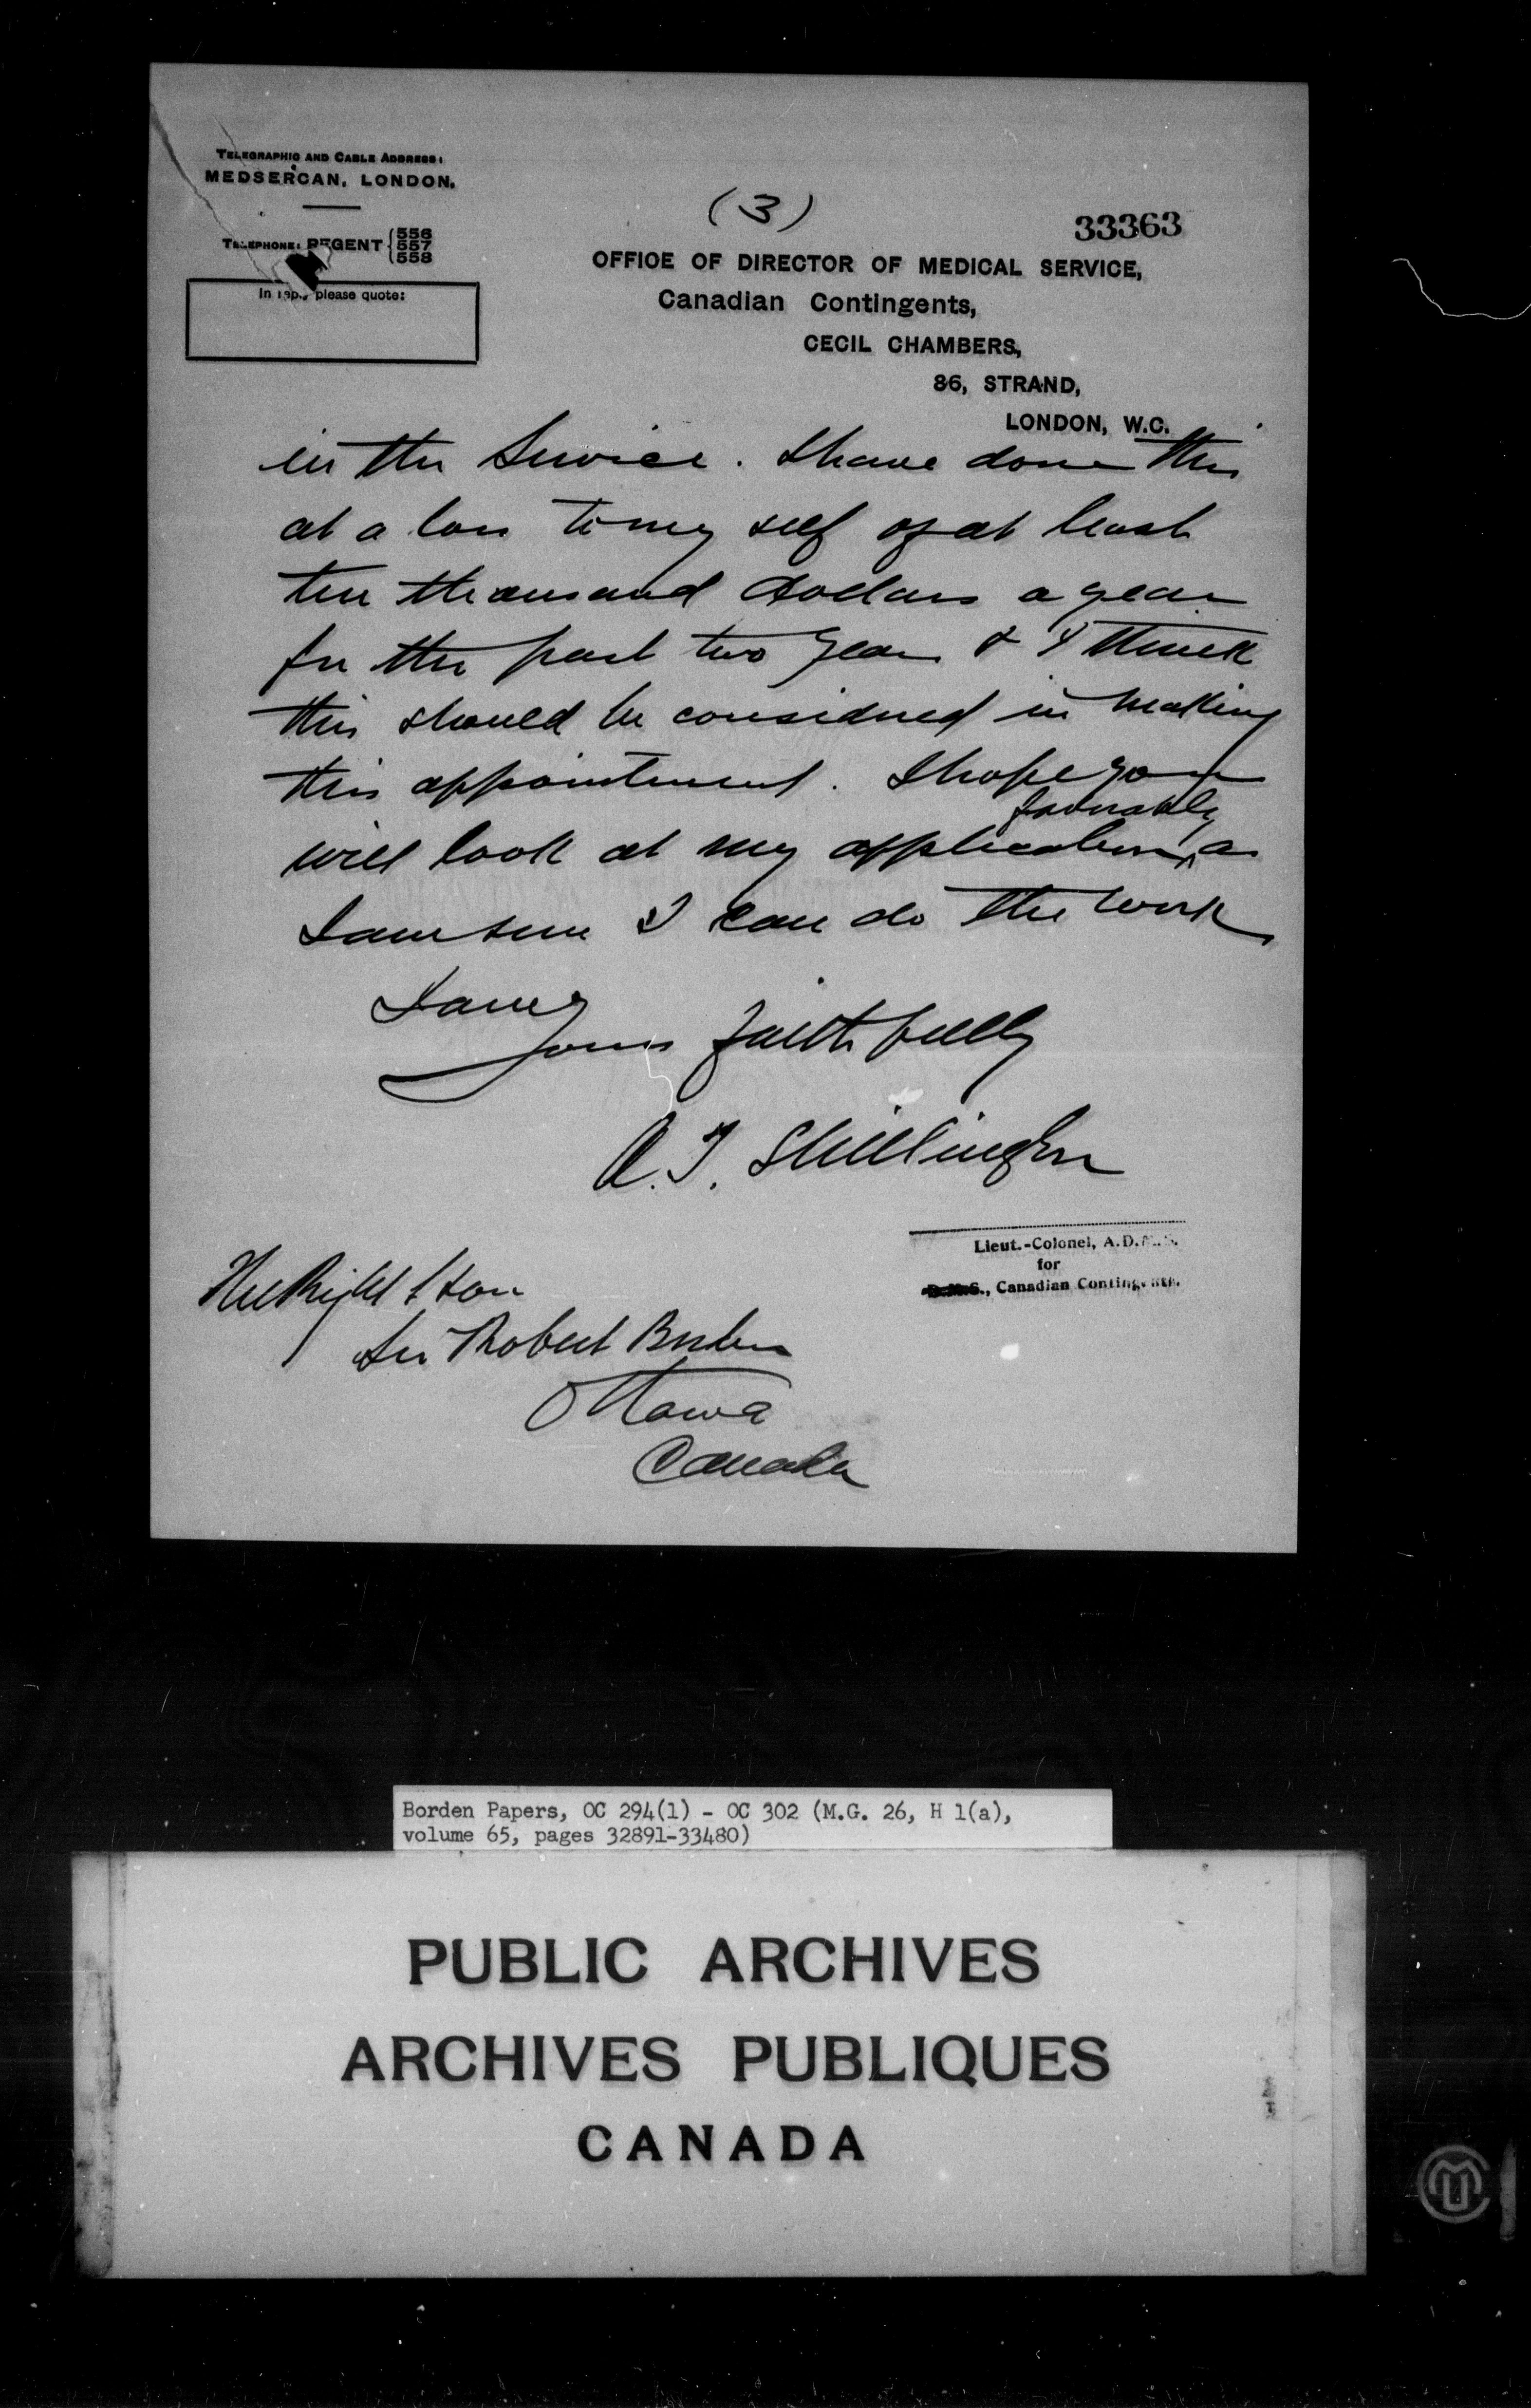 TELEGRAPHIC AND CABLE ADDRESS:
MEDSERCAN, LONDON.
TELEPHONE: REGENT { 556
557
558
In reply please quote:
(3)
33363
OFFICE OF DIRECTOR OF MEDICAL SERVICE,
Canadian Contingents,
CECIL CHAMBERS,
86, STRAND,
LONDON, W.C.
in the Service. I have done this
at a loss to my self of at least
ten thousand dollars a year
for the past two years & I think
this should be considered in making
this appointment. I hope you
favorably
will look at my application ^ as
I am sure I can do the work
I am
yours faithfully
A. T. Shillington
Lieut.-Colonel, A.D.M.S.
for
D.M.S., Canadian Contingents.
The Right Hon
Sir Robert Borden
Ottawa
Canada
Borden Papers, OC 294(1) - OC 302 (M.G. 26, H 1(a),
volume 65, pages 32891-33480)
PUBLIC ARCHIVES
ARCHIVES PUBLIQUES
CANADA